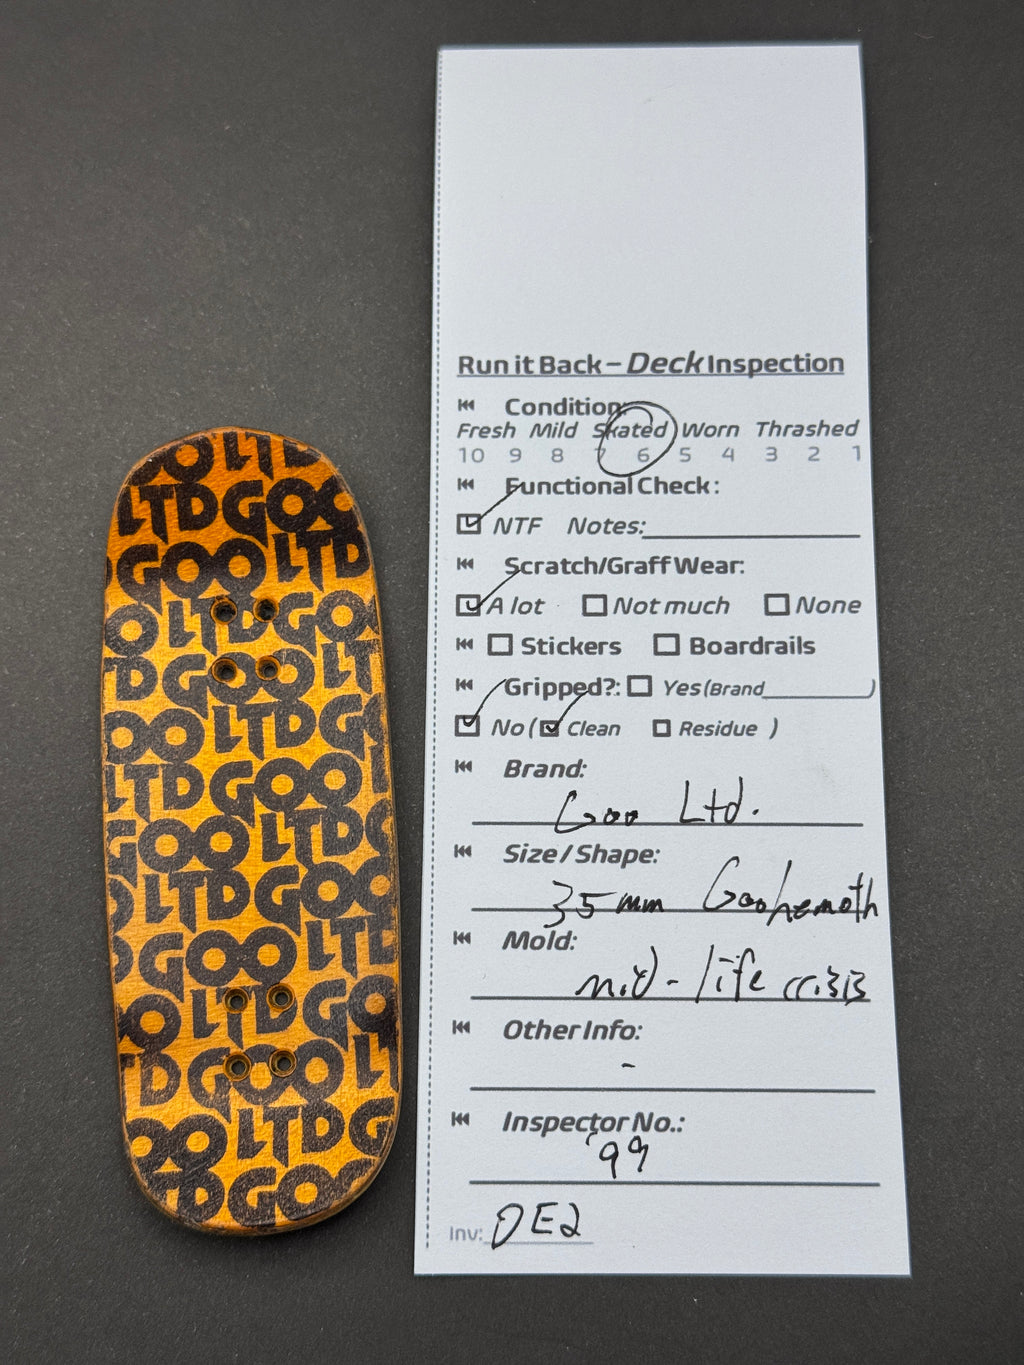 OO LTD
LTD GOO
GOO LTD
O LTD GOO
TD GOO LT
OO LTD GO
LTD GOO
GOO LTD G
O LTD GOO
D GOO LTD
O LTD GO
TD GOO LT
OO LTD G
TD GOO
Run it Back – Deck Inspection
Condition:
Fresh Mild Skated Worn Thrashed
10 9 8 7 6 5 4 3 2 1
Functional Check:
NTF Notes:
Scratch/Graff Wear:
A lot Not much None
Stickers Boardrails
Gripped?: Yes (Brand )
No ( Clean Residue )
Brand:
Goo Ltd.
Size / Shape:
35mm Goohemoth
Mold:
mid-life crisis
Other Info:
-
Inspector No.:
'99
Inv: OE2